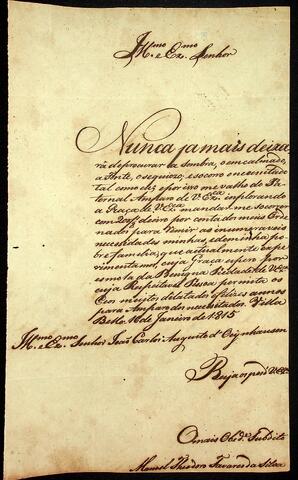 Illmo e Exmo Senhor
Nunca jamais deixa
rá de procurar a sombra, o emcalmado,
a Fonte, o sequiozo, e socorro o necessitado
tal como eu, e por isso me valho do Pa
ternal Amparo de V. Exa. implorando
a Graça de V. Exa mandar me socorrer
com 20$ dro por conta dos meus Orde
nados para Remir as innumeraveis
necessidades minhas, e de minha po
bre familia, que actualmente expe
rimentamos, cuja Graça espero por
esmola da Benigna Piedade de V. Exa
cuja Respeitavel Pessoa permita os
Ceos muitos dilatados e felizes annos
para Amparo dos necessitados. Villa
Bella 10 de Janeiro de 1815
Illmo e Exmo Senhor João Carlos Augusto d' Oeynhausen
Beija os pés de V. Exa
O mais Obde Subdito
Manoel Theodoro Tavares da Silva